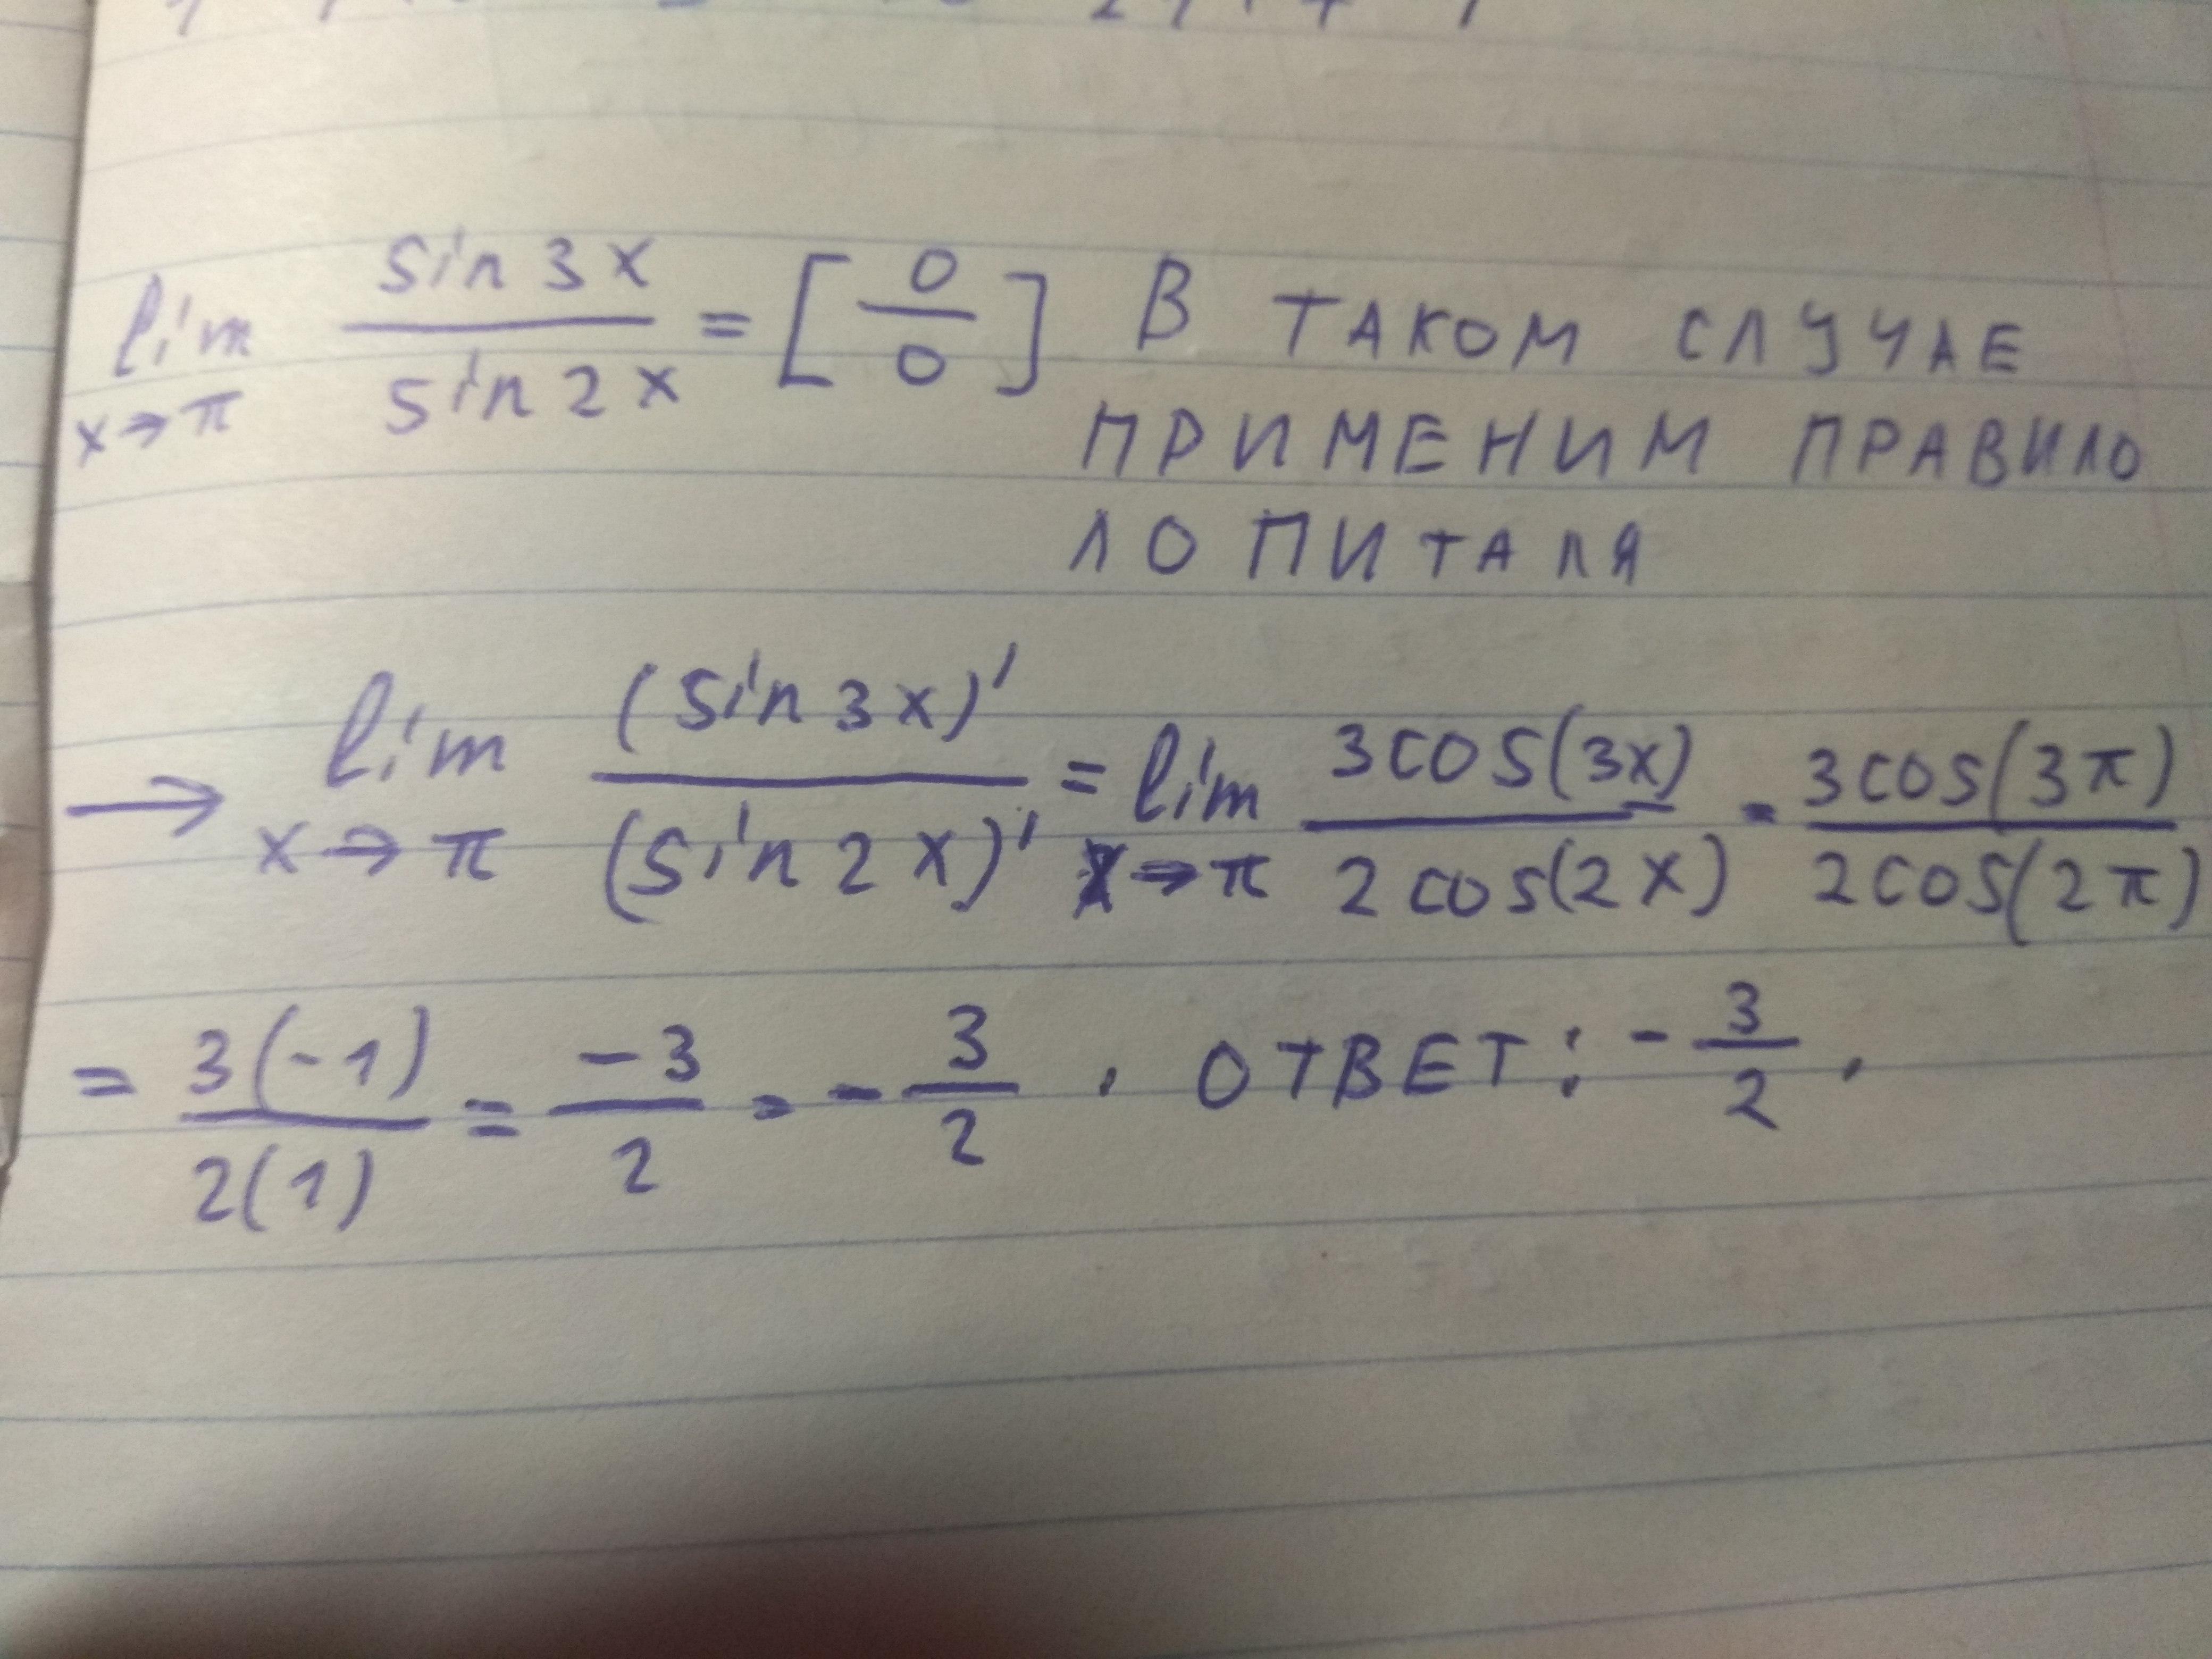 lim x→π sin 3x / sin 2x = [0/0] В ТАКОМ СЛУЧАЕ
ПРИМЕНИМ ПРАВИЛО
ЛОПИТАЛЯ
→ lim x→π (sin 3x)' / (sin 2x)' = lim x→π 3cos(3x) / 2cos(2x) = 3cos(3π) / 2cos(2π)
= 3(-1) / 2(1) = -3 / 2 = - 3/2 . ОТВЕТ: - 3/2 .